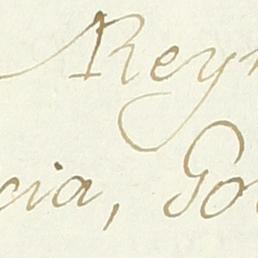 Reyn
cia, Go